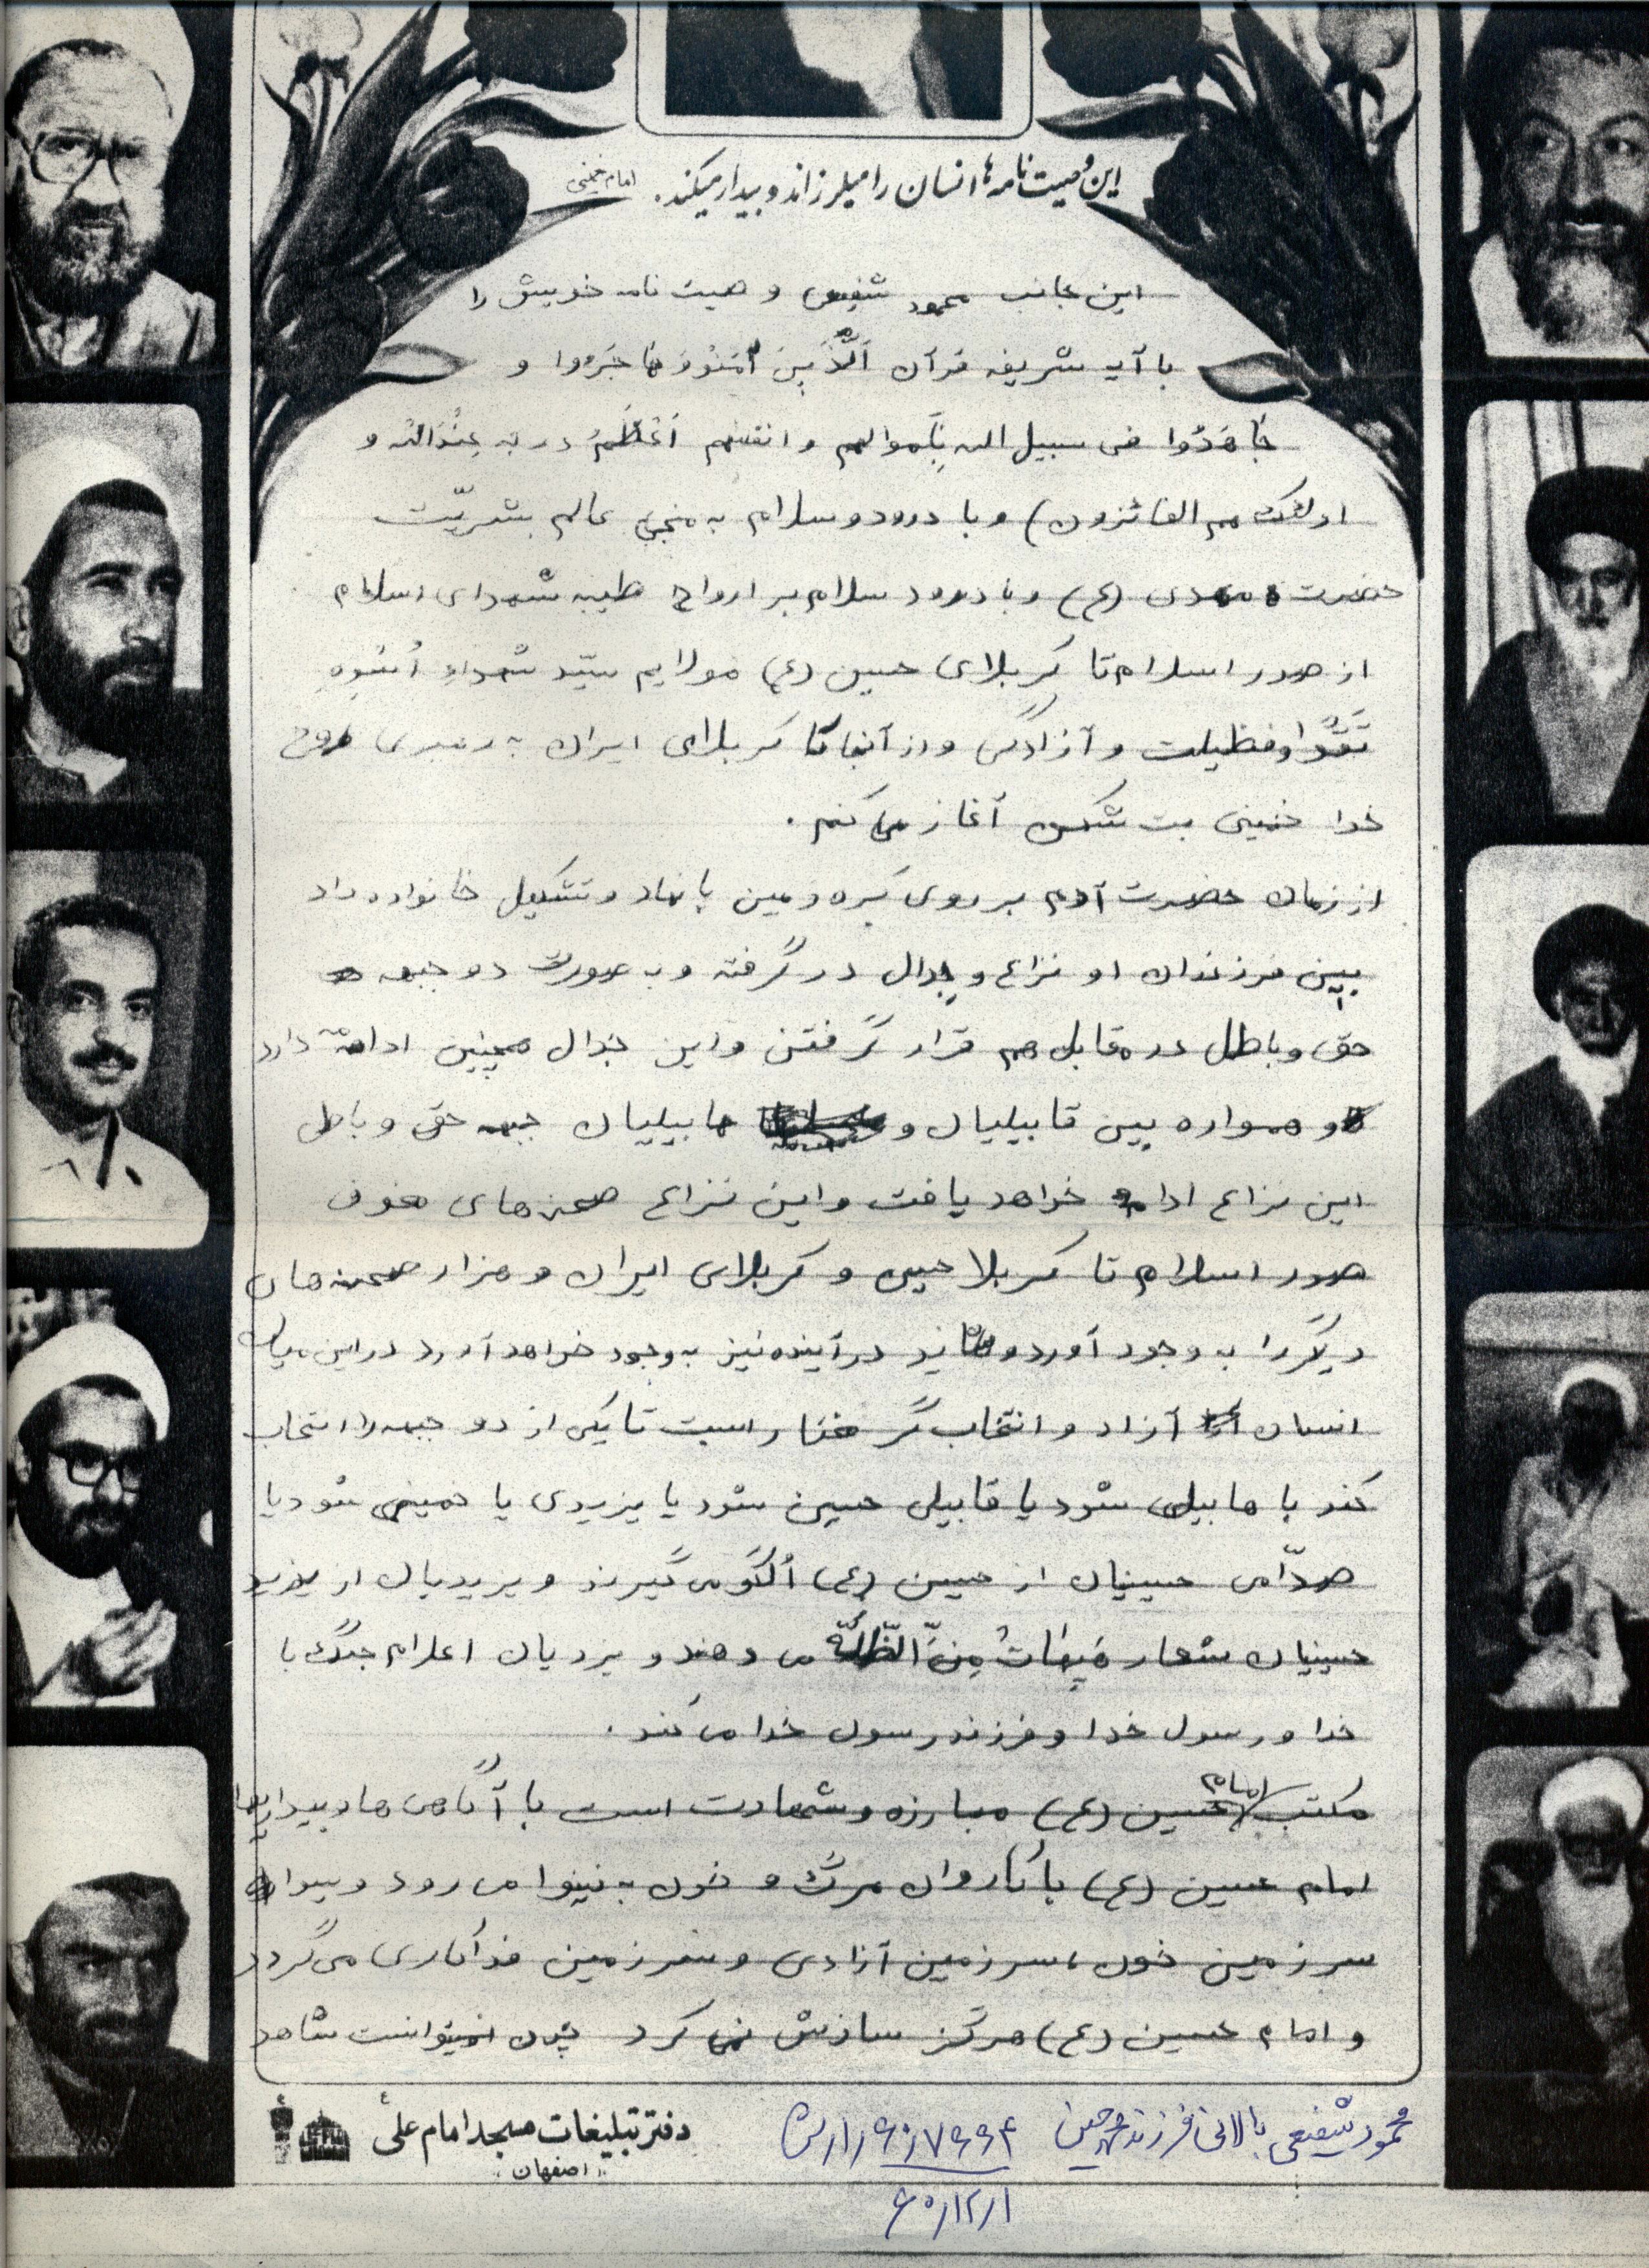 این وصیت نامه ها انسان را میلرزاند و بیدار میکند. امام خمینی
این جانب محمود شفیعی وصیت نامه خویش را
با آیه شریفه قرآن اَلَّذینَ آمَنُوُ هٰاجَرُوا و
جٰاهَدُوا فی سبیل الله بِاَموالهم و انفسهم اَعْظَمُ درجه عِنْدَالله و
اولئک هم الفائزون) و با درود و سلام به منجی عالم بشریّت
حضرت مهدی (عج) و با درود سلام بر ارواح طیبه شهدای اسلام
از صدر اسلام تا کربلای حسین (ع) مولایم سیّد شهداءِ اُسْوِهِ
تَقْوا و فظیلت و آزادگی و از آنجا تا کربلای ایران به رهبری روح
خدا خمینی بت شکن آغاز می کنم.
از زمان حضرت آدم بر روی کره زمین پا نهاد و تشکیل خانواده داد
بین فرزندان او نزاع و جدال در گرفته و به صورت دو جبهه
حق و باطل در مقابل هم قرار گرفتن و این جدال همچنین ادامه دارد
و همواره بین قابیلیان و هابیلیان جبهه حق و باطل
این نزاع ادامه خواهد یافت و این نزاع صحنه های مخوف
صدر اسلام تا کربلا حسین و کربلای ایران و هزار صحنه های
دیگر را به وجود آورد و شاید در آینده نیز به وجود خواهد آورد در این میان
انسان آزاد و انتخاب گر مختار است تا یکی از دو جبهه را انتخاب
کند یا هابیلی شود یا قابیلی حسین شود یا یزیدی یا خمینی شود یا
صدّامی حسینیان از حسین (ع) اُلگو می گیرند و یزیدیان از یزید
حسینیان شعار هَیهٰاتُ مِنَّ الذِّلَّه می دهند و یزدیان اعلام جنگ با
خدا و رسول خدا و فرزند رسول خدا می کند.
مکتب امام حسین (ع) مبارزه و شهادت است با آگاهی ها و بیداریها
امام حسین (ع) با کاروان مرگ و خون به نینوا می رود و نینوا
سرزمین خون، سرزمین آزادی و سرزمین فداکاری می گردد
و امام حسین (ع) هرگز سازش نمی کرد چون نمیتوانست شاهد
محمود شفیعی بالانی فرزند محمدحسین
۶۰/۱۲/۱
دفتر تبلیغات مسجد امام علی
اصفهان